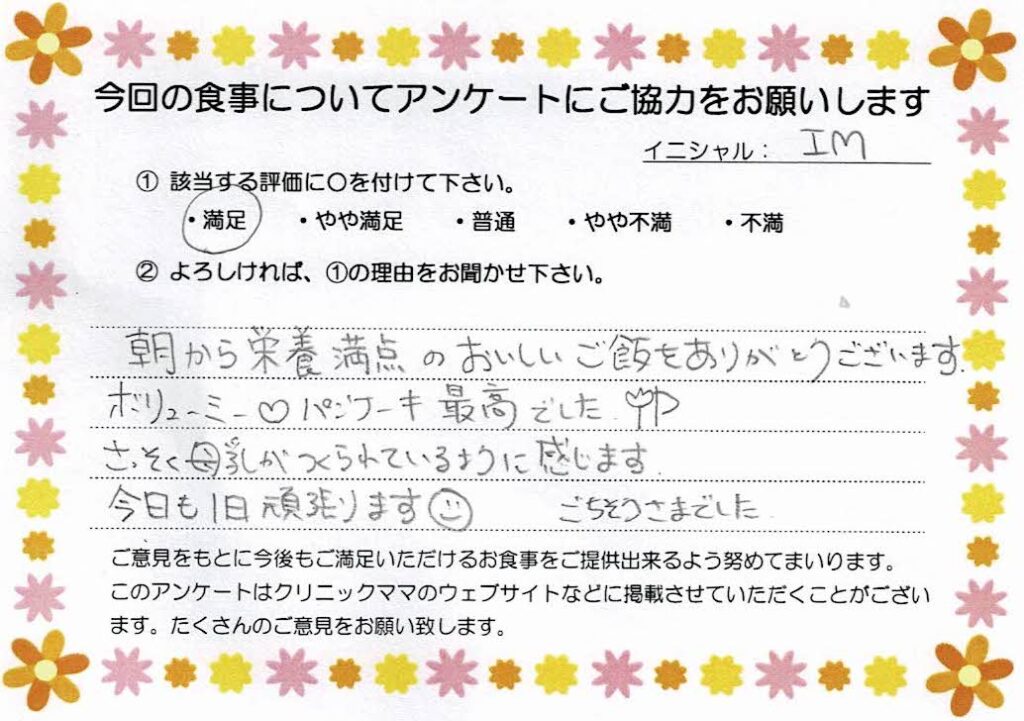 今回の食事についてアンケートにご協力をお願いします
イニシャル： IM
① 該当する評価に〇を付けて下さい。
・満足 ・やや満足 ・普通 ・やや不満 ・不満
② よろしければ、①の理由をお聞かせ下さい。
朝から栄養満点のおいしいご飯をありがとうございます.
ボリューミー♡パンケーキ最高でした
さっそく母乳がつくられているように感じます.
今日も1日頑張ります☺ ごちそうさまでした.
ご意見をもとに今後もご満足いただけるお食事をご提供出来るよう努めてまいります。
このアンケートはクリニックママのウェブサイトなどに掲載させていただくことがござい
ます。たくさんのご意見をお願い致します。